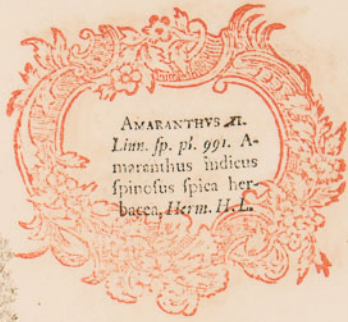 AMARANTHVS XI.
Linn. ſp. pl. 991. A-
maranthus indicus
ſpinoſus ſpica her-
bacea, Herm. H. L.